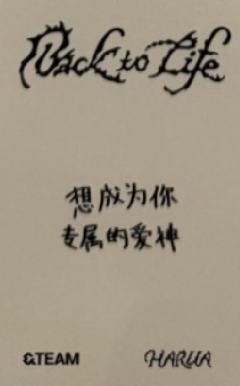 Back to Life
想成为你
专属的爱神
&TEAM
HARUA